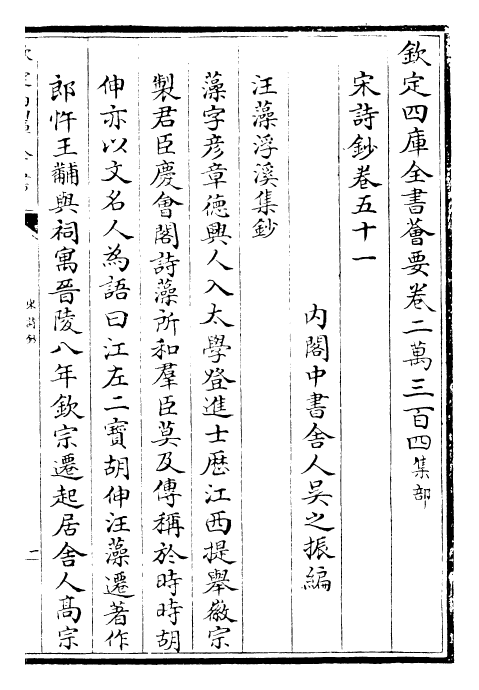 欽定四庫全書薈要卷二萬三百四集部
宋詩鈔卷五十一
內閣中書舍人吳之振編
汪藻浮溪集鈔
藻字彦章德興人入太學登進士歴江西提舉徽宗
製君臣慶會閣詩藻所和羣臣莫及傳稱於時時胡
伸亦以文名人為語曰江左二寶胡伸汪藻遷著作
郎忤王黼與祠寓晉陵八年欽宗遷起居舍人髙宗
宋詩鈔